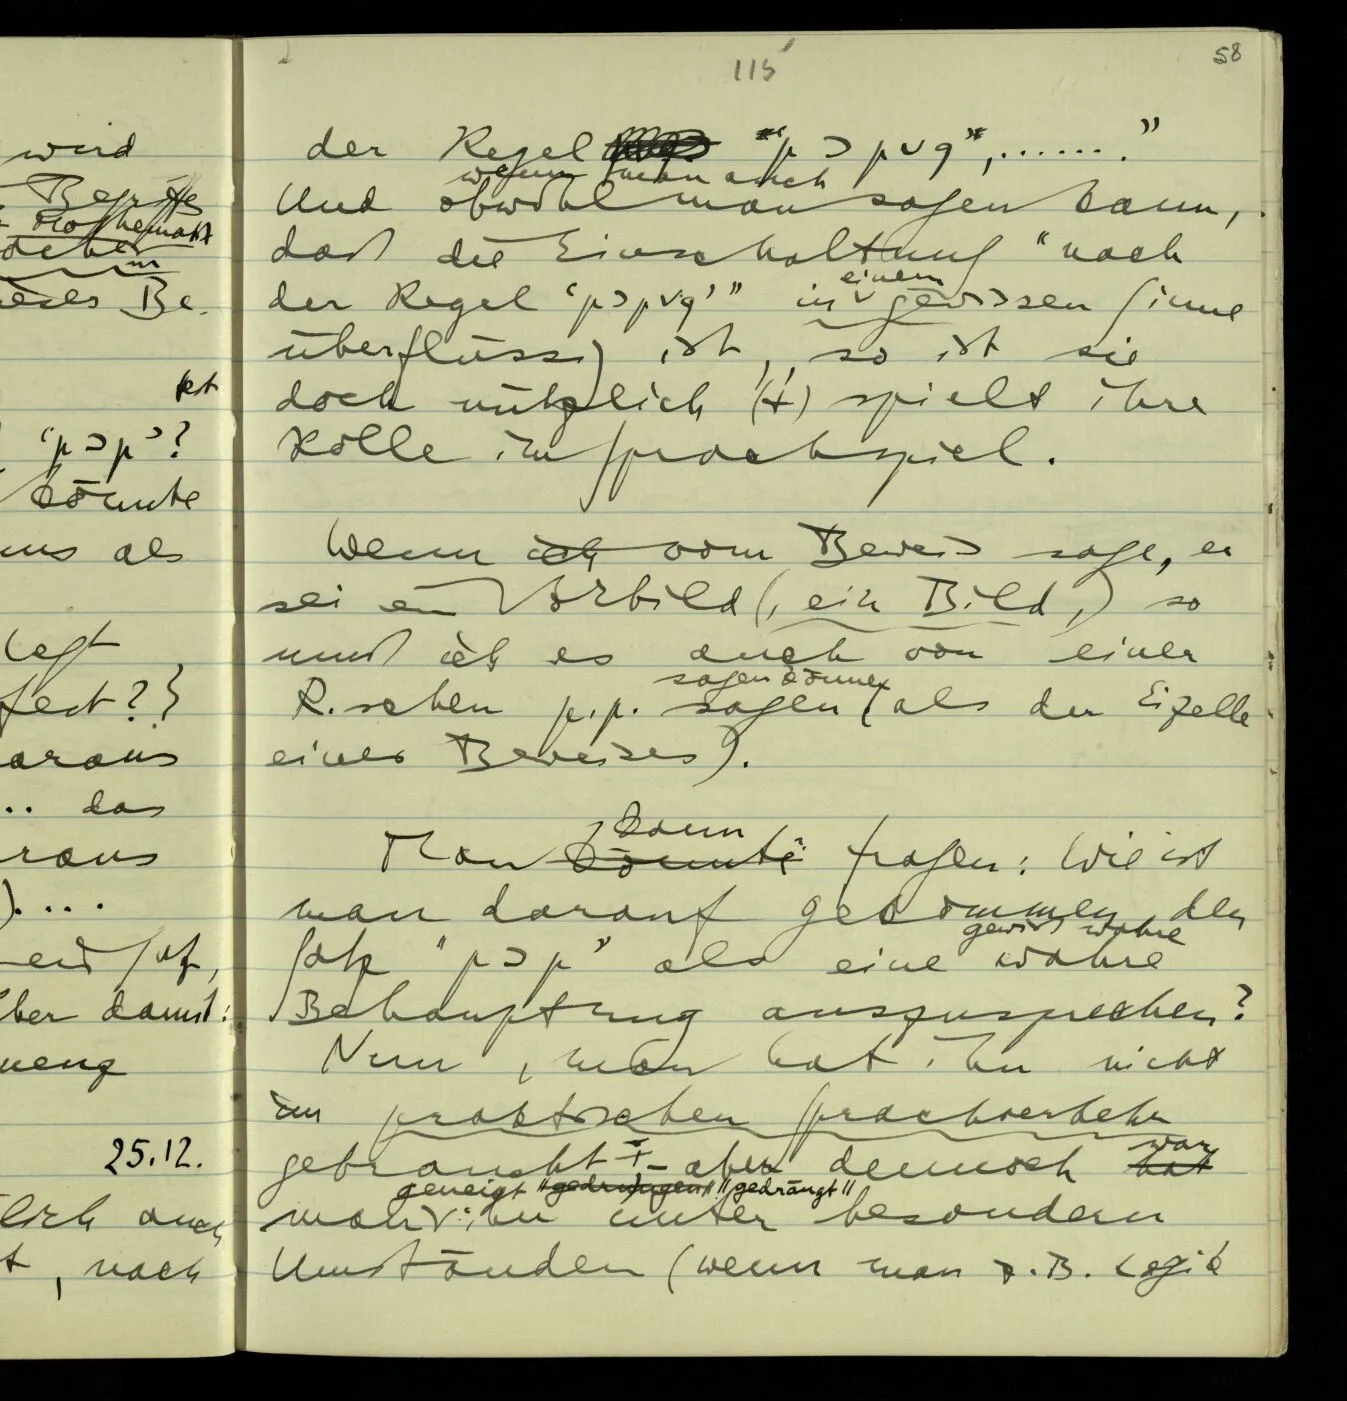 wird
Begriffe
Mathemat
in
dieses Be-
ist
'p⊃p'?
könnte
uns als
legt
fest?)
daraus
.. das
raus
)....
Satz,
aber damit:
wenig
25.12.
lich auch
t, nach
115
58
der Regel "'p ⊃ p∨q', ......."
wenn man auch
Und obwohl man sagen kann,
daß die Einschaltung "nach
einem
der Regel 'p⊃p∨q'" in gewissen Sinne
überflüssig ist, so ist sie
doch nützlich (+) spielt ihre
Rolle im Sprachspiel.
Wenn ich vom Beweis sage, er
sei ein Vorbild (, ein Bild,) so
muß ich es auch von einer
sagen können
R.schen p.p. sagen (als der Eizelle
eines Beweises).
kann
Man könnte fragen: Wie ist
man darauf gekommen, den
gewiß wahre
Satz "p⊃p" als eine wahre
Behauptung auszusprechen?
Nun, man hat ihn nicht
im praktischen Sprachverkehr
war
gebraucht – aber dennoch hat
geneigt "gedrungen" "gedrängt"
man ihn unter besondern
Umständen (wenn man z.B. Logik